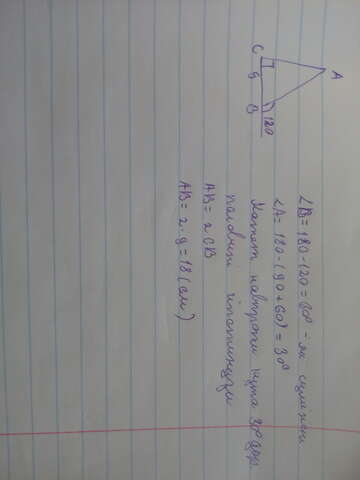 A
C
9
B
120
∠B = 180-120 = 60° - як суміжні
∠A = 180-(90+60) = 30°
Катет навпроти кута 30° дор.
половині гіпотенузи
AB = 2 CB
AB = 2·9 = 18 (см)